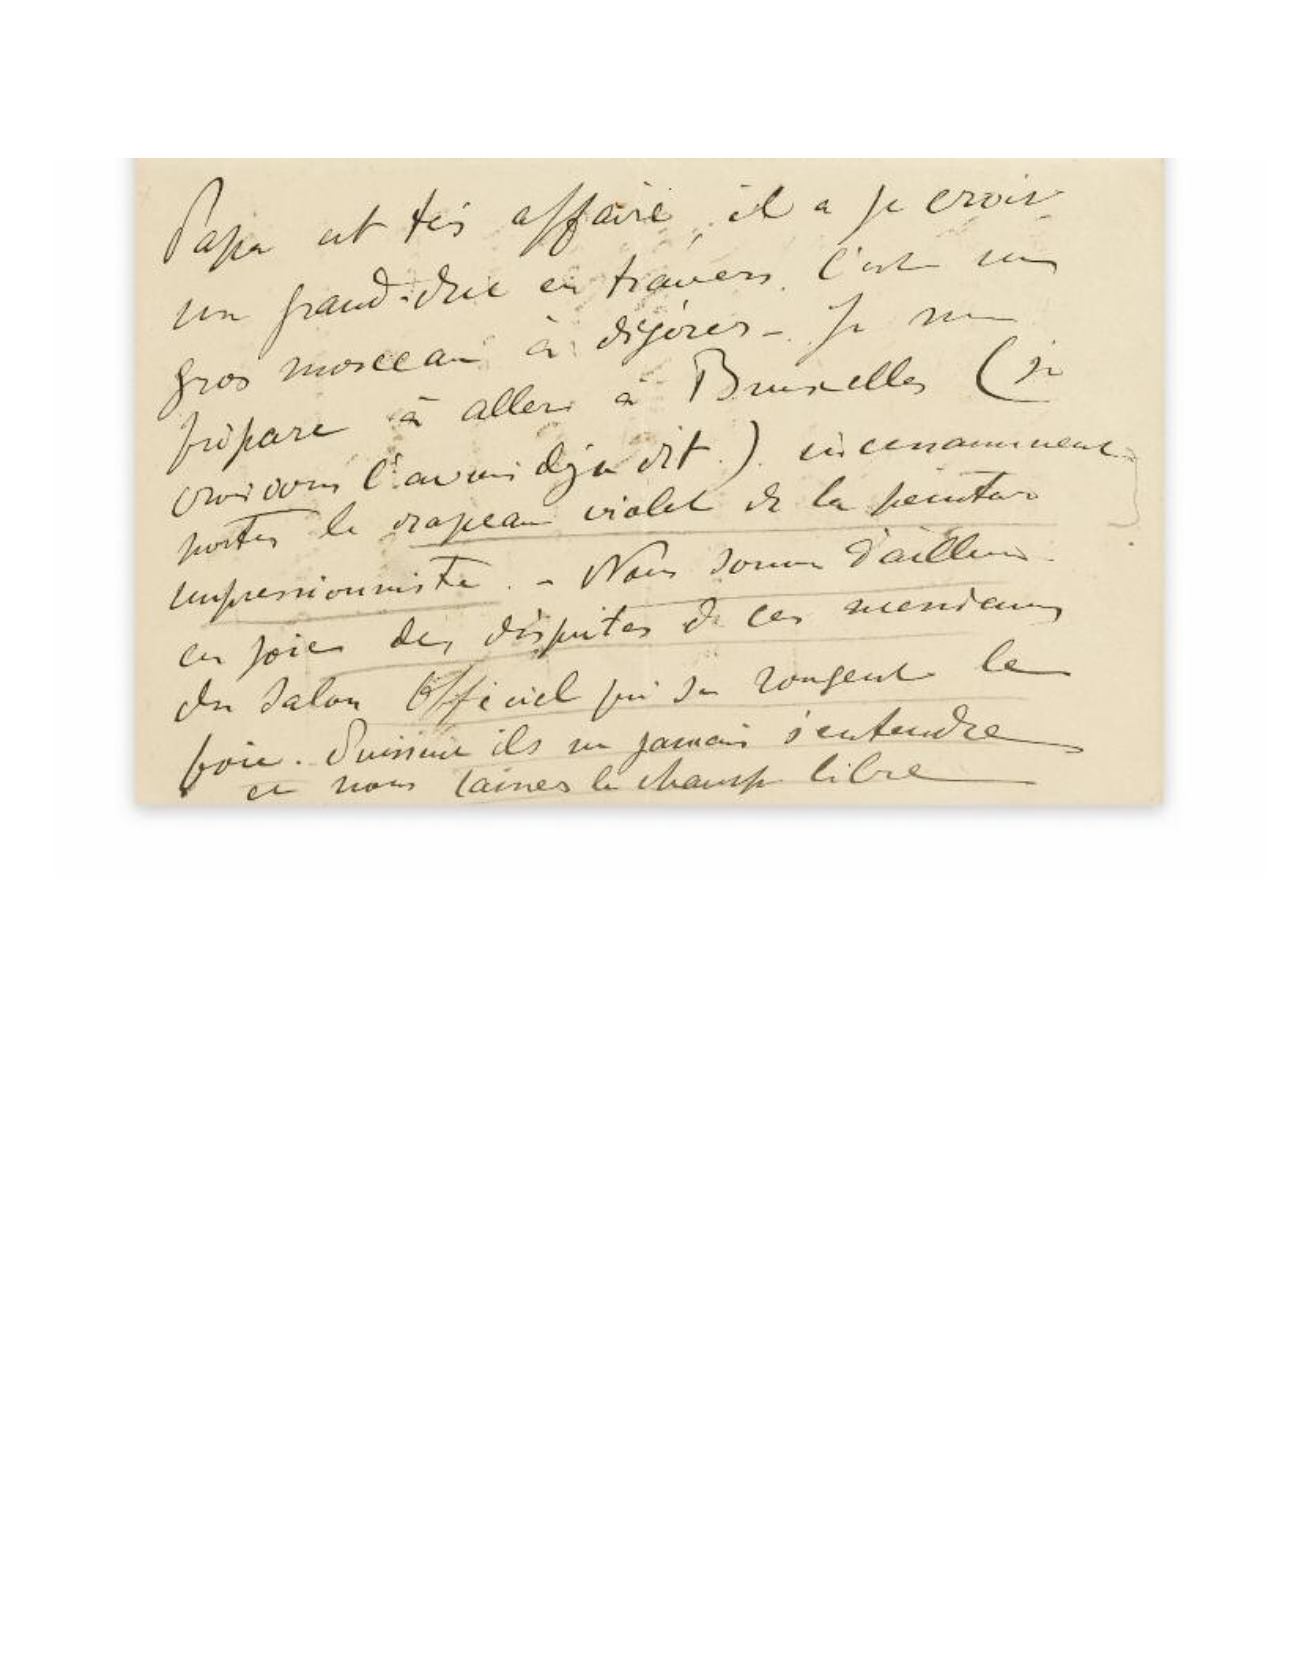 Papa est très affairé, il a je crois
un grand-duc en travers. C'est un
gros morceau à digérer - Je me
prépare à aller à Bruxelles (je
crois vous l'avoir déjà dit). incessamment
porter le drapeau violet de la peinture
impressionniste. - Nous sommes d'ailleurs
en joie des disputes de ces messieurs
du Salon Officiel qui se rongent le
foie. Puissent ils ne jamais s'entendre
et nous laisser le champ libre